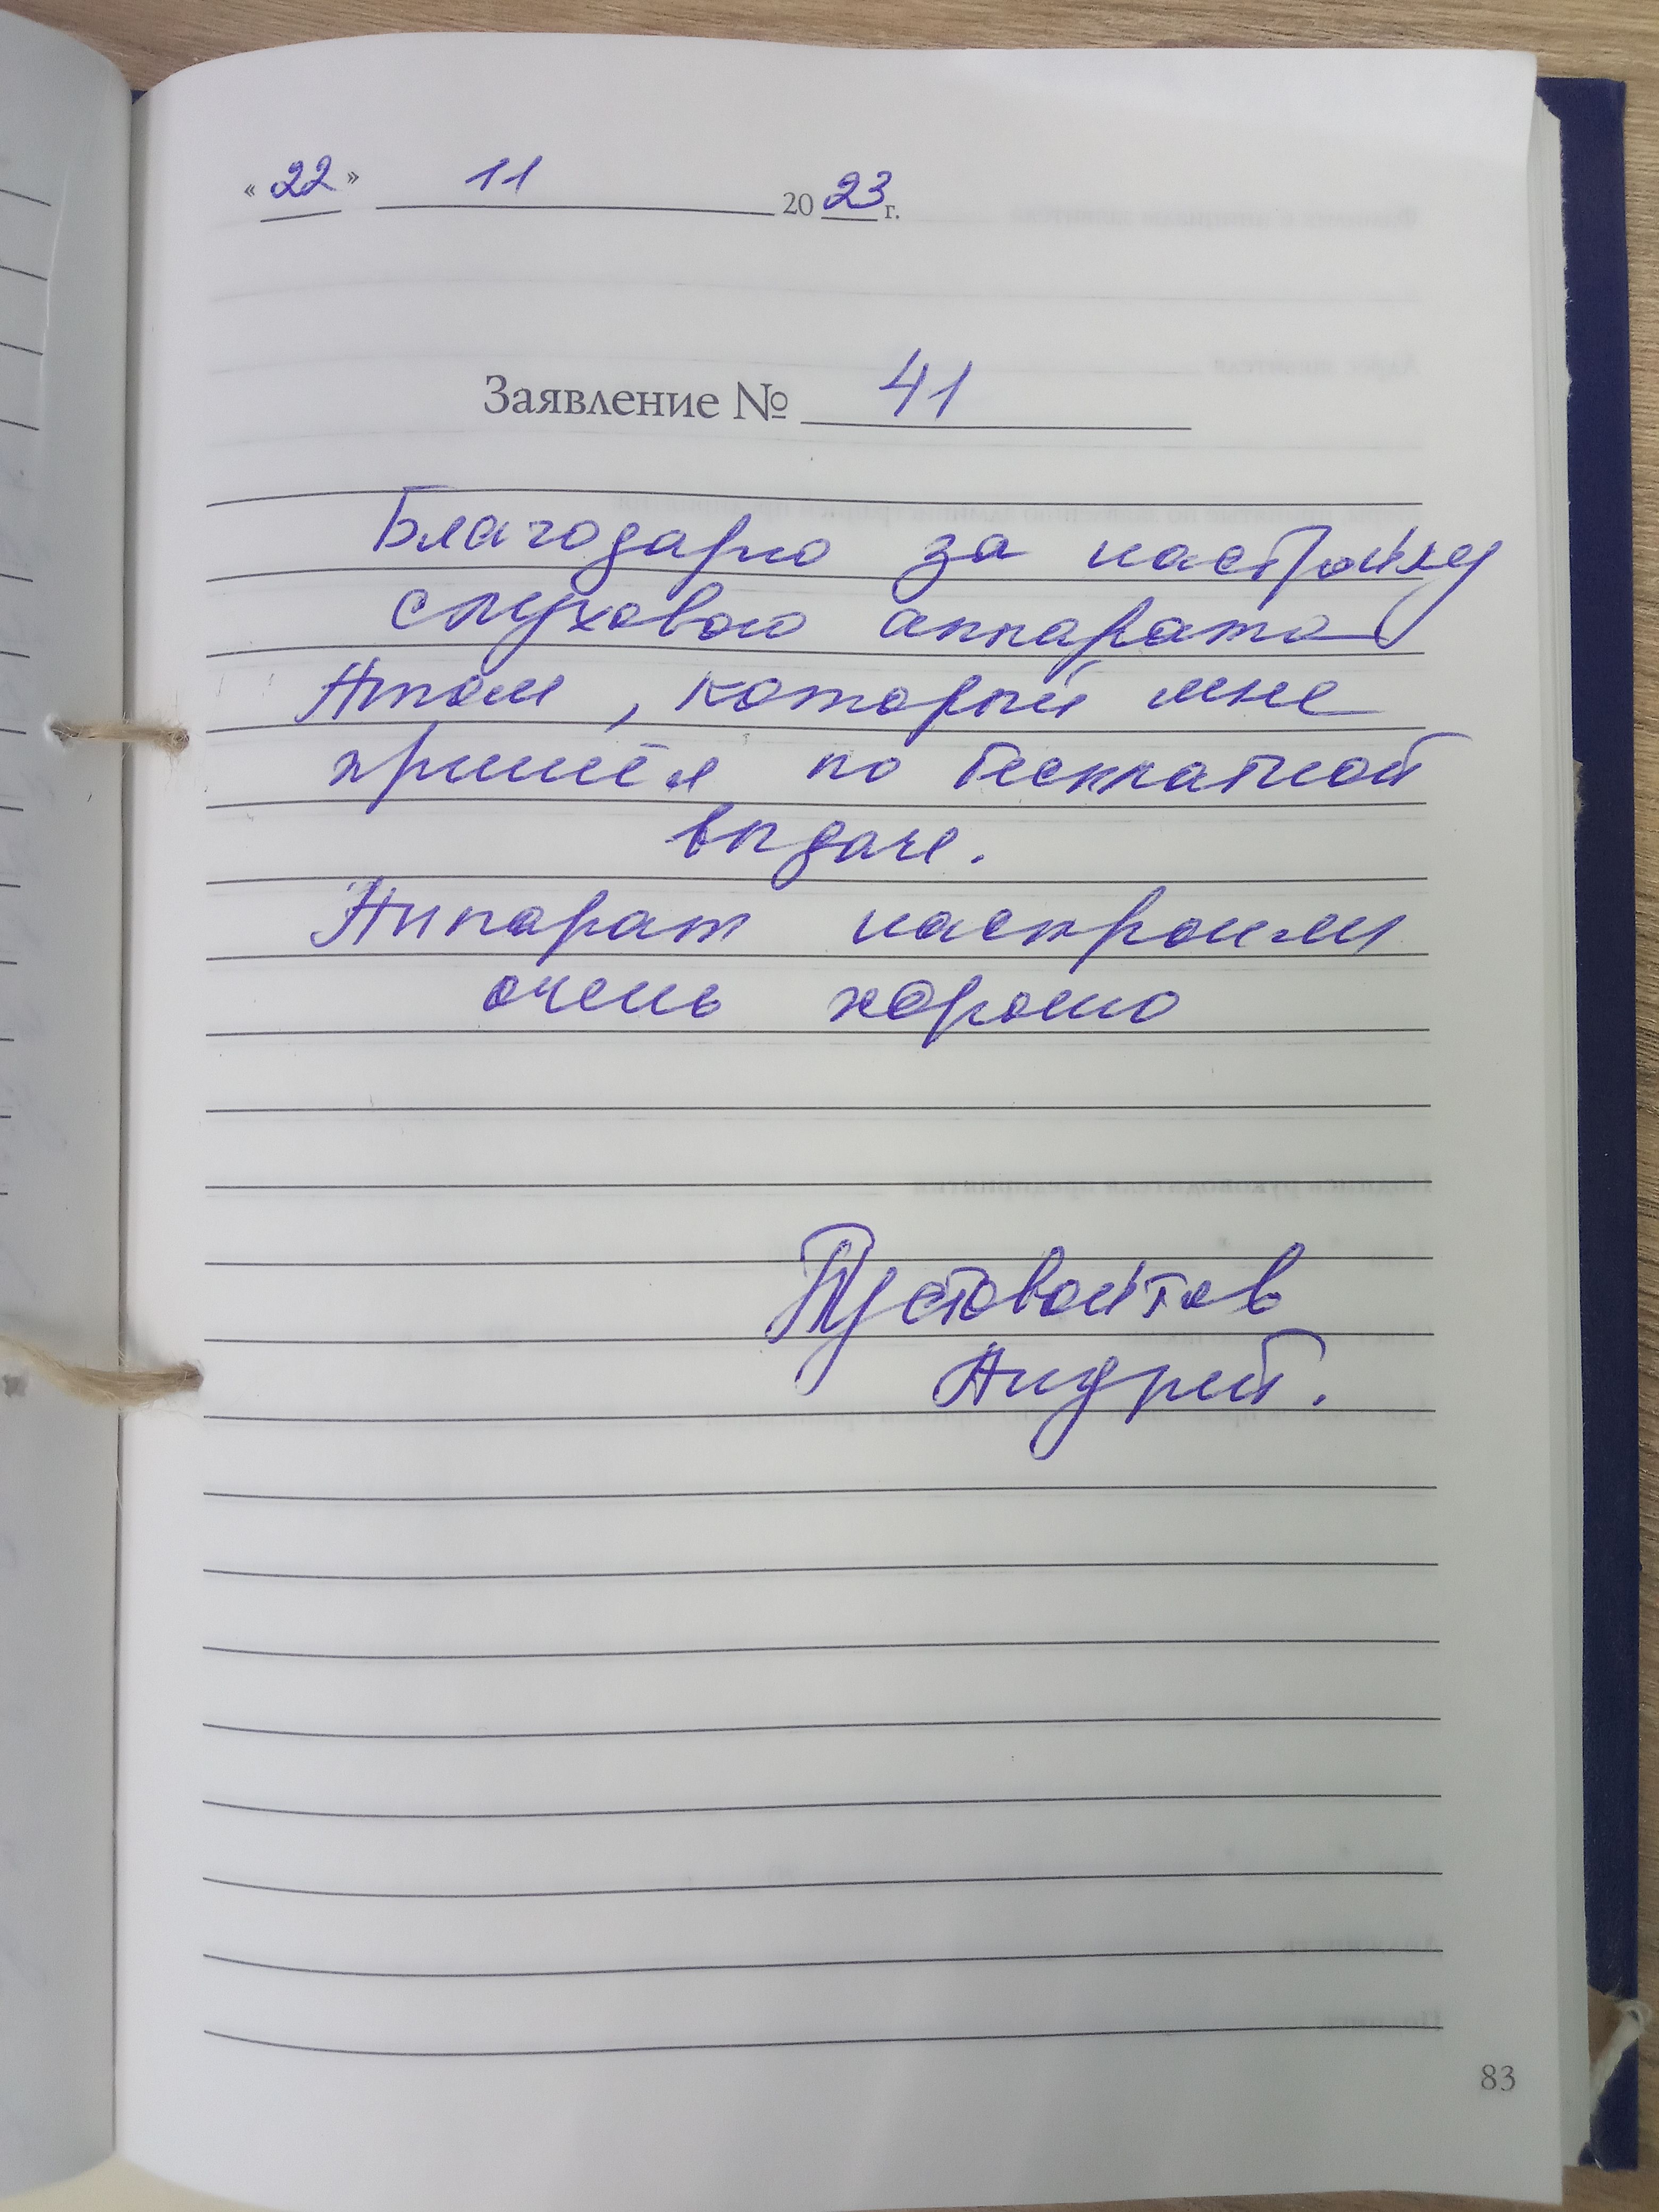 «22» 11 2023 г.
Заявление № 41
Благодарю за настройку
слухового аппарата
Атом, который мне
пришёл по бесплатной
выдаче.
Аппарат настроили
очень хорошо
Пустовойтов
Андрей.
83